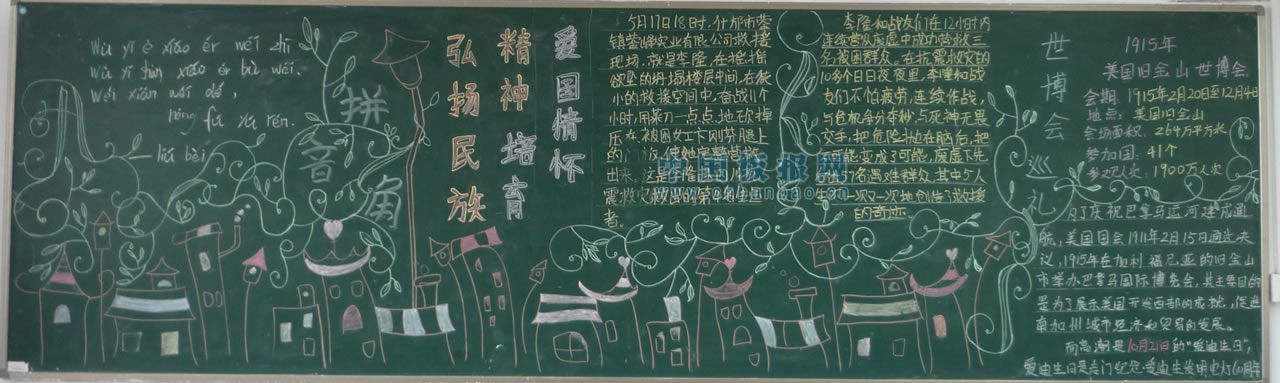 Wù yǐ è xiǎo ér wéi zhī
Wù yǐ shàn xiǎo ér bù wéi.
Wéi xián wéi dé,
néng fú yú rén.
liú bèi
拼音角
弘扬民族
精神 培育
爱国情怀
5月17日18时,什邡市蓥
镇蓥峰实业有限公司救援
现场,就是李隆,在摇摇
欲坠的坍塌楼层中间,在狭
小的救援空间中,奋战11个
小时,用采刀一点点地砍掉
压在被困女工卞刚芬腿上
出来,这是
震救灾
者。
李隆和战友们在12小时内
连续营从废墟中成功营救三
名被困群众。在抗震救灾的
10多个日日夜夜里,李隆和战
友们不怕疲劳,连续作战,
与危机争分夺秒,与死神无畏
交手,把危险抛在脑后,把
可能变成了可能,废墟下生
名遇难群众,其中5人
生,一次又一次地创造了救援
的奇迹。
中国板报网
世博会巡礼
1915年
美国旧金山世博会
会期:1915年2月20至12月4日
地点:美国旧金山
会场面积:264万平方米
参加国:41个
参观人次:1900万人次
为了庆祝巴拿马运河建成通
航,美国国会1911年2月15日通过决
议,1915年在加利福尼亚的旧金山
市举办巴拿马国际博览会,其主要目的
是为了展示美国开发西部的成就,促进
南加州城市经济和贸易的发展。
而高潮是10月21日的“爱迪生日”,
爱迪生日是专门纪念爱迪生发明电灯